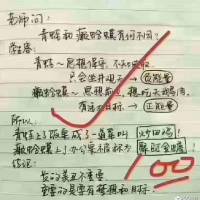 老师问：
青蛙和癞蛤蟆有何不同？
学生答：
青蛙～思想保守，不思进取
只会坐井观天→负能量
癞蛤蟆～思想前卫，想吃天鹅肉，
有远大目标。→正能量
所以：
青蛙上了饭桌成了一道菜叫 炒田鸡！
癞蛤蟆上了办公桌被称为 聚财金蟾！
结论：
长的美丑不重要
重要的是要有梦想和目标。
100